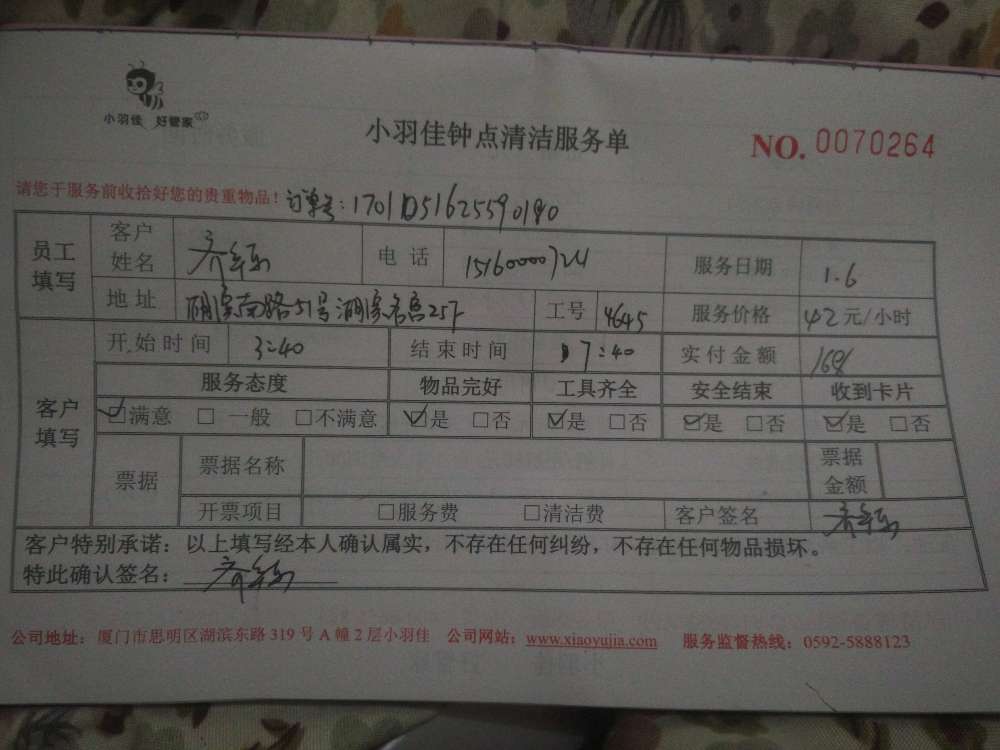 小羽佳 好管家
小羽佳钟点清洁服务单
NO. 0070264
请您于服务前收拾好您的贵重物品! 订单号:
员工填写 客户姓名 电话 服务日期 1.6
地址 工号 4645 服务价格 42元/小时
客户填写 开始时间 3:40 结束时间 7:40 实付金额 168
服务态度 物品完好 工具齐全 安全结束 收到卡片
☑满意 □一般 □不满意 ☑是 □否 ☑是 □否 ☑是 □否 ☑是 □否
票据 票据名称 票据金额
开票项目 □服务费 □清洁费 客户签名
客户特别承诺:以上填写经本人确认属实,不存在任何纠纷,不存在任何物品损坏。
特此确认签名:
公司地址:厦门市思明区湖滨东路319号A幢2层小羽佳 公司网站:www.xiaoyujia.com 服务监督热线:0592-5888123